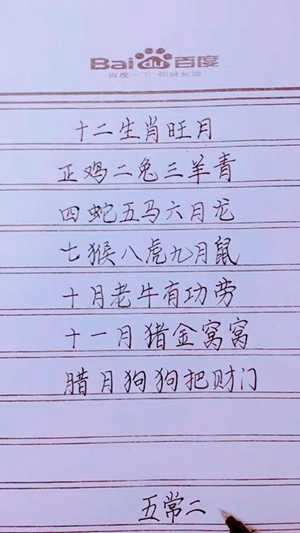 Bai 百度
百度一下 你就知道
十二生肖旺月
正鸡二兔三羊青
四蛇五马六月龙
七猴八虎九月鼠
十月老牛有功劳
十一月猪金窝窝
腊月狗狗把财门
五常二